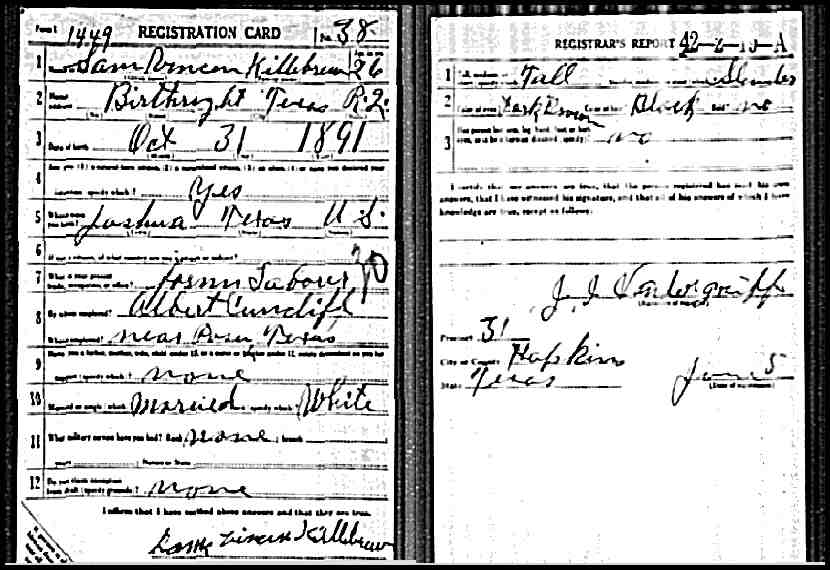 Form 1 1449 REGISTRATION CARD No. 38
1 Sam Killebrew 26
2 Birthright Texas R.2.
3 Date of birth Oct 31 1891
4 Are you (1) a natural-born citizen, (2) a naturalized citizen, (3) an alien, (4) or have you declared your
intention (specify which)? Yes
5 Where were you born? Joshua Texas U S.
6 If not a citizen, of what country are you a citizen or subject?
7 What is your present trade, occupation, or office? Farm Labour 30
8 By whom employed? Albert Cundiff
Where employed? near Texas
9 Have you a father, mother, wife, child under 12, or a sister or brother under 12, solely dependent on you for
support (specify which)? none
10 Married or single (which)? Married Race (specify which)? White
11 What military service have you had? Rank none ; branch
years ; Nation or State
12 Do you claim exemption from draft (specify grounds)? none
I affirm that I have verified above answers and that they are true.
Sam Killebrew
REGISTRAR'S REPORT 42-2-15-A
1 Tall, medium, or short (specify which)? Tall Slender, medium, or stout (which)? Slender
2 Color of eyes? Dark Brown Color of hair? Black Bald? no
3 Has person lost arm, leg, hand, foot, or both eyes, or is he otherwise disabled (specify)? no
I certify that my answers are true, that the person registered has read his own
answers, that I have witnessed his signature, and that all of his answers of which I have
knowledge are true, except as follows:
(Signature of registrar)
Precinct 31
City or County Hopkins
State Texas June 5
(Date of registration)